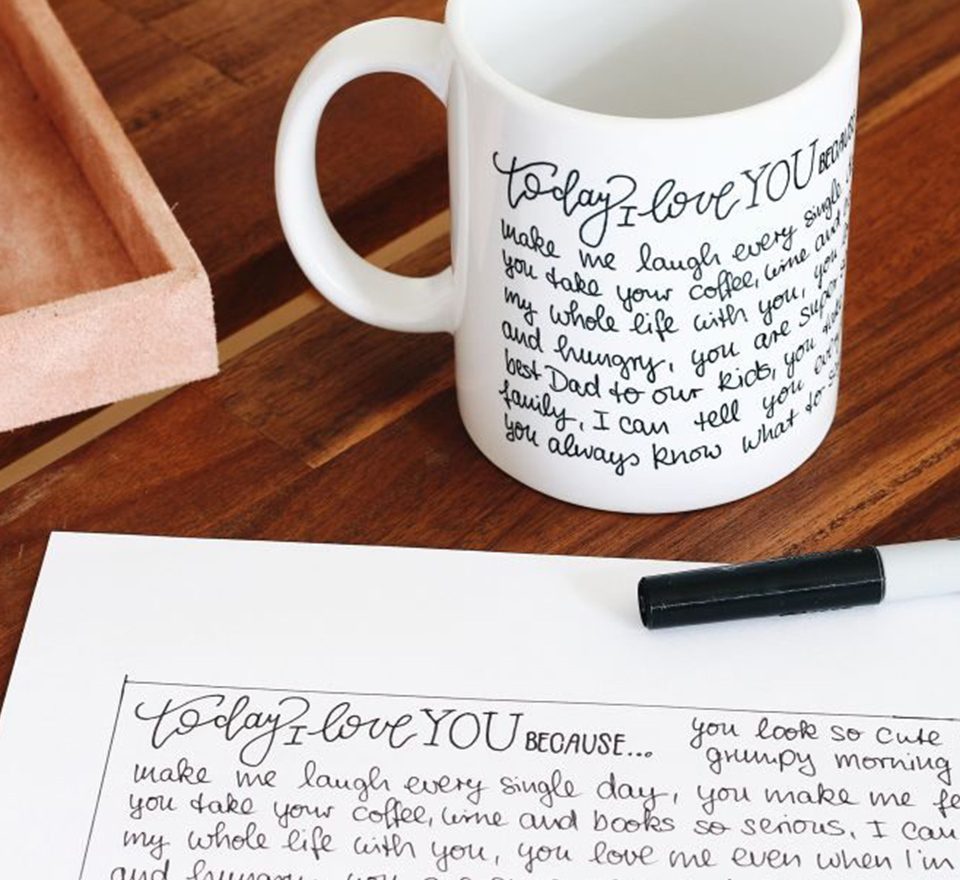 today I love YOU BECAUSE
make me laugh every single
you take your coffee, wine and
my whole life with you, you
and hungry, you are super
best Dad to our kids, you
family, I can tell you
you always know what to
today I love YOU BECAUSE...
you look so cute
grumpy morning
make me laugh every single day, you make me
you take your coffee, wine and books so serious, I can
my whole life with you, you love me even when I'm
and hungry, you are